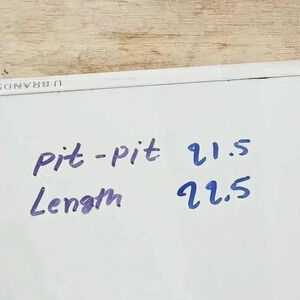 U BRANDS
pit-pit 21.5
Length 22.5